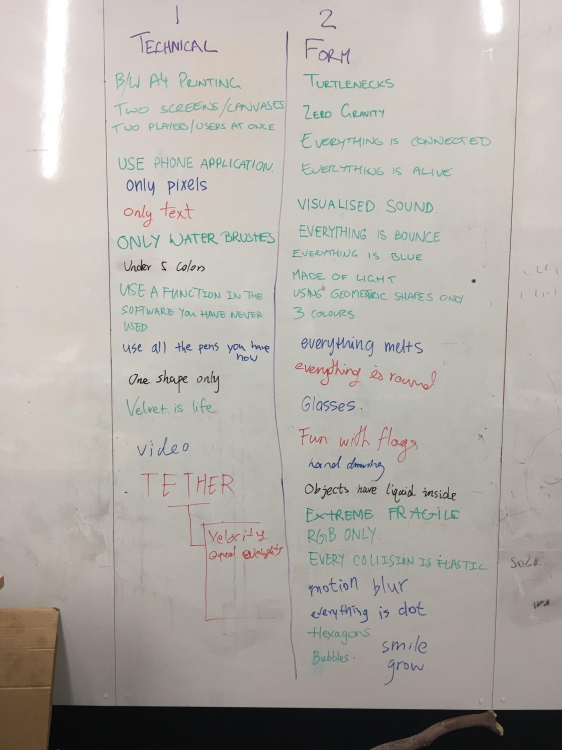 1
TECHNICAL
B/W A4 PRINTING
TWO SCREENS/CANVASES
TWO PLAYERS/USERS AT ONCE
USE PHONE APPLICATION.
only pixels
only text
ONLY WATER BRUSHES
Under 5 colors
USE A FUNCTION IN THE
SOFTWARE YOU HAVE NEVER
USED
use all the pens you have
now
One shape only
Velvet is life
video
TETHER
Velocity
equal weights
2
FORM
TURTLENECKS
ZERO GRAVITY
EVERYTHING IS CONNECTED
EVERYTHING IS ALIVE
VISUALISED SOUND.
EVERYTHING IS BOUNCE
EVERYTHING IS BLUE
MADE OF LIGHT
USING GEOMETRIC SHAPES ONLY
3 COLOURS
everything melts
everything is round
Glasses.
Fun with flags
hand drawing
Objects have liquid inside
EXTREME FRAGILE
RGB ONLY
EVERY COLLISION IS ELASTIC
motion blur
everything is dot
Hexagons
Bubbles.
smile
grow